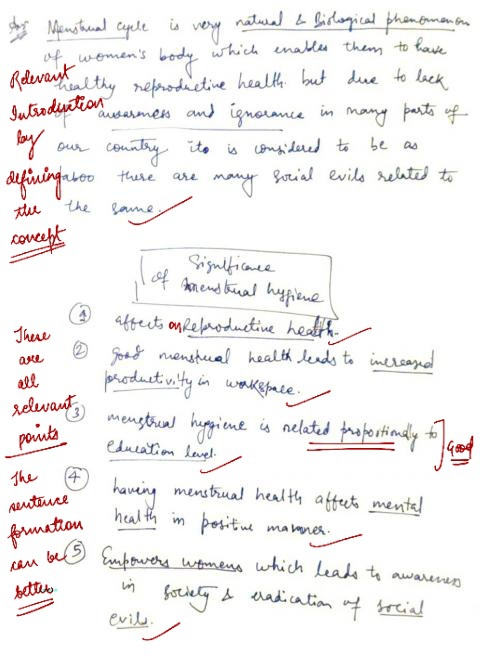 Ans Menstrual cycle is very natural & Biological phenomenon
of women's body which enables them to have
healthy reproductive health but due to lack
of awareness and ignorance in many parts of
our country its is considered to be as
taboo there are many social evils related to
the same.
Relevant
Introduction
by
defining
the
concept
Significance
of menstrual hygiene
1 affects on Reproductive health.
2 good menstrual health leads to increased
productivity in workspace.
3 menstrual hygiene is related propostionally to
Education level.
Good
4 having menstrual health affects mental
health in positive manner.
5 Empowers womens which leads to awareness
in society & eradication of social
evils.
These
are
all
relevant
points
The
sentence
formation
can be
better.